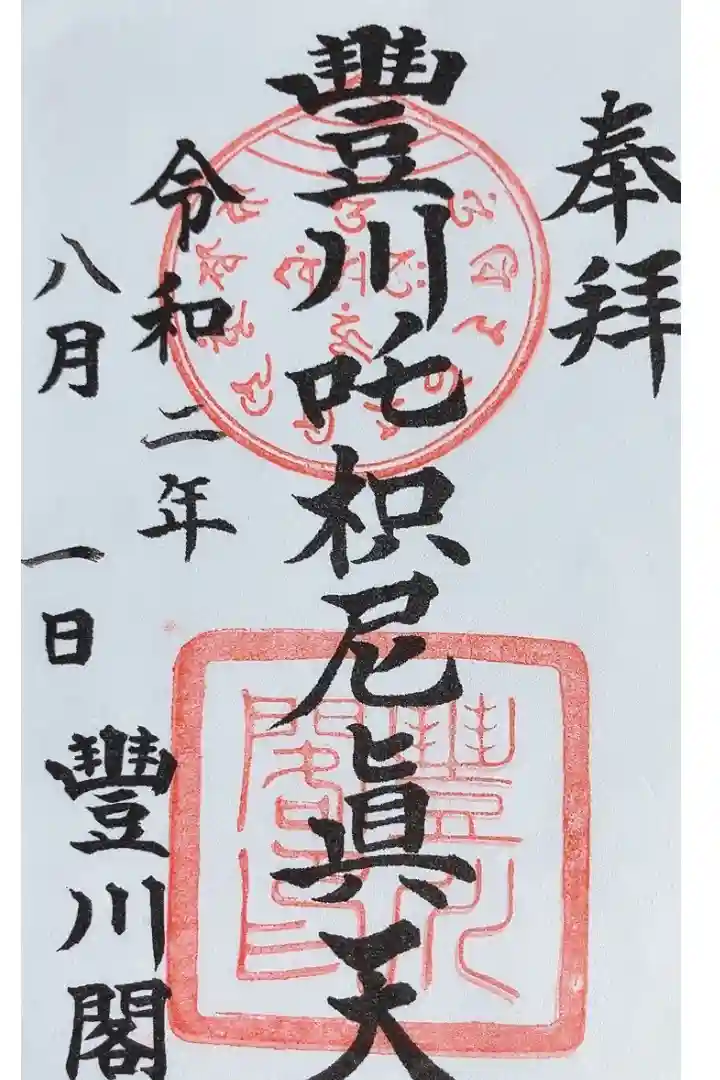 奉拜
豐川吒枳尼眞天
令和二年
八月一日
豐川閣
豐川閣印